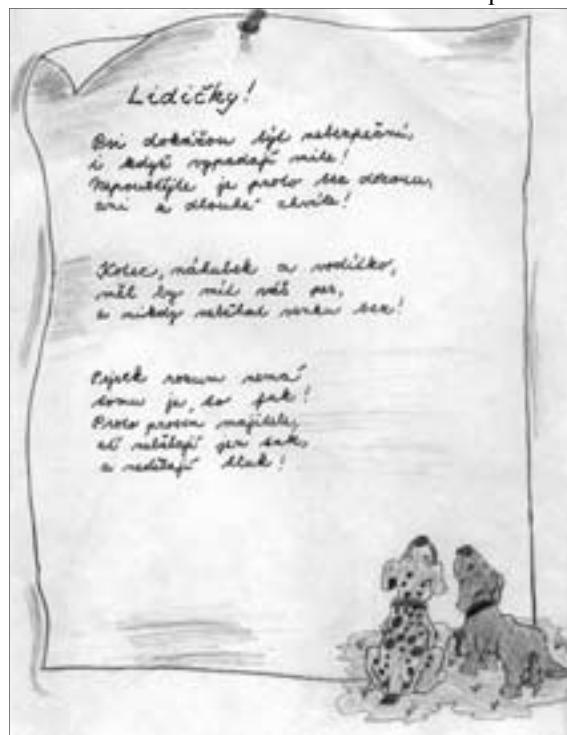 Lidičky!
Psi dokážou být nebezpeční,
i když vypadají mile!
Nepouštějte je proto bez dozoru,
ani z dlouhé chvíle!
Kotec, náhubek a vodítko,
měl by mít váš pes,
a nikdy neběhat venku bez!
Pejsek rozum nemá
tomu je, to fuk!
Proto prosím majitele,
ať neběhají jen tak,
a nedělají